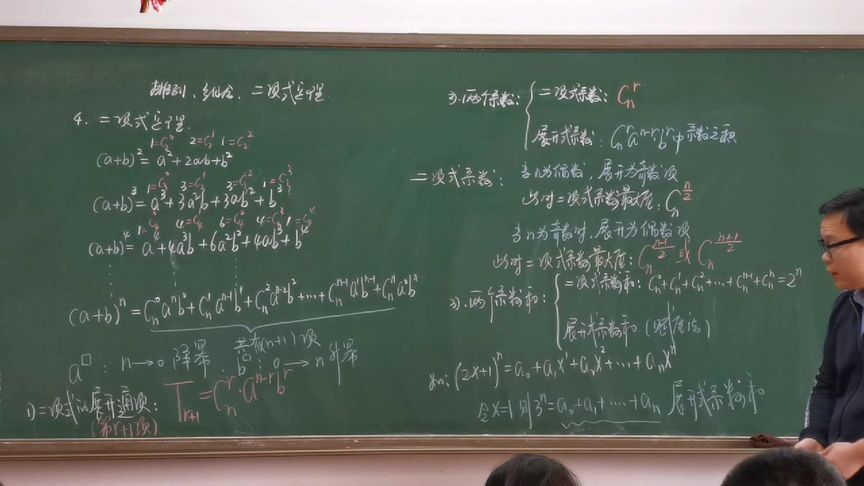 排列、组合、二项式定理
4. 二项式定理
1=C₂⁰ 2=C₂¹ 1=C₂²
(a+b)²=a²+2ab+b²
1=C₃⁰ 3=C₃¹ 3=C₃² 1=C₃³
(a+b)³=a³+3a²b+3ab²+b³
1=C₄⁰ 4=C₄¹ 6=C₄² 4=C₄³ 1=C₄⁴
(a+b)⁴=a⁴+4a³b+6a²b²+4ab³+b⁴
(a+b)ⁿ=Cₙ⁰aⁿb⁰+Cₙ¹aⁿ⁻¹b¹+Cₙ²aⁿ⁻²b²+…+Cₙⁿ⁻¹a¹bⁿ⁻¹+Cₙⁿa⁰bⁿ
共有(n+1)项
a□: n→0 降幂. b□: 0→n 升幂
1)二项式的展开通项: Tᵣ₊₁=Cₙʳaⁿ⁻ʳbʳ
(第r+1项)
两个系数:
二项式系数: Cₙʳ
展开式系数: Cₙʳaⁿ⁻ʳbʳ中系数之积
二项式系数: 当n为偶数,展开为奇数项
此时二项式系数最大是: Cₙ^(n/2)
当n为奇数时,展开为偶数项
此时二项式系数最大是: Cₙ^((n-1)/2)或Cₙ^((n+1)/2)
两个系数和:
二项式系数和: Cₙ⁰+Cₙ¹+Cₙ²+…+Cₙⁿ⁻¹+Cₙⁿ=2ⁿ
展开式系数和(赋值法)
如: (2x+1)ⁿ=a₀+a₁x¹+a₂x²+…+aₙxⁿ
令x=1则3ⁿ=a₀+a₁+…+aₙ 展开式系数和